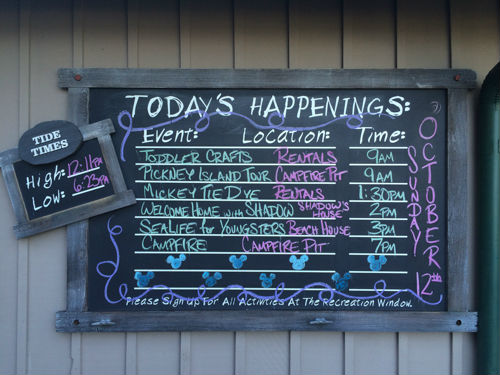 TODAY'S HAPPENINGS:
Event: Location: Time:
TODDLER CRAFTS RENTALS 9AM
PICKNEY ISLAND TOUR CAMPFIRE PIT 9AM
MICKEY TIE DYE RENTALS 1:30PM
WELCOME HOME WITH SHADOW SHADOW'S HOUSE 2PM
SEALIFE FOR YOUNGSTERS BEACH HOUSE 3PM
CAMPFIRE CAMPFIRE PIT 7PM
Please Sign Up For All Activities At The Recreation Window.
SUNDAY
OCTOBER 12th
TIDE TIMES
High: 12:11PM
Low: 6:23PM